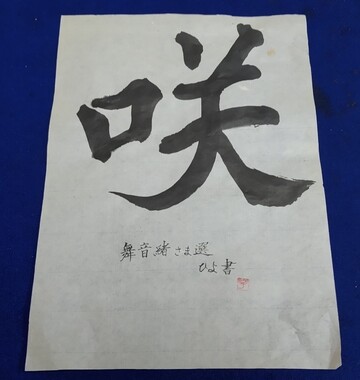 咲
舞音緒さま選
ひよ書